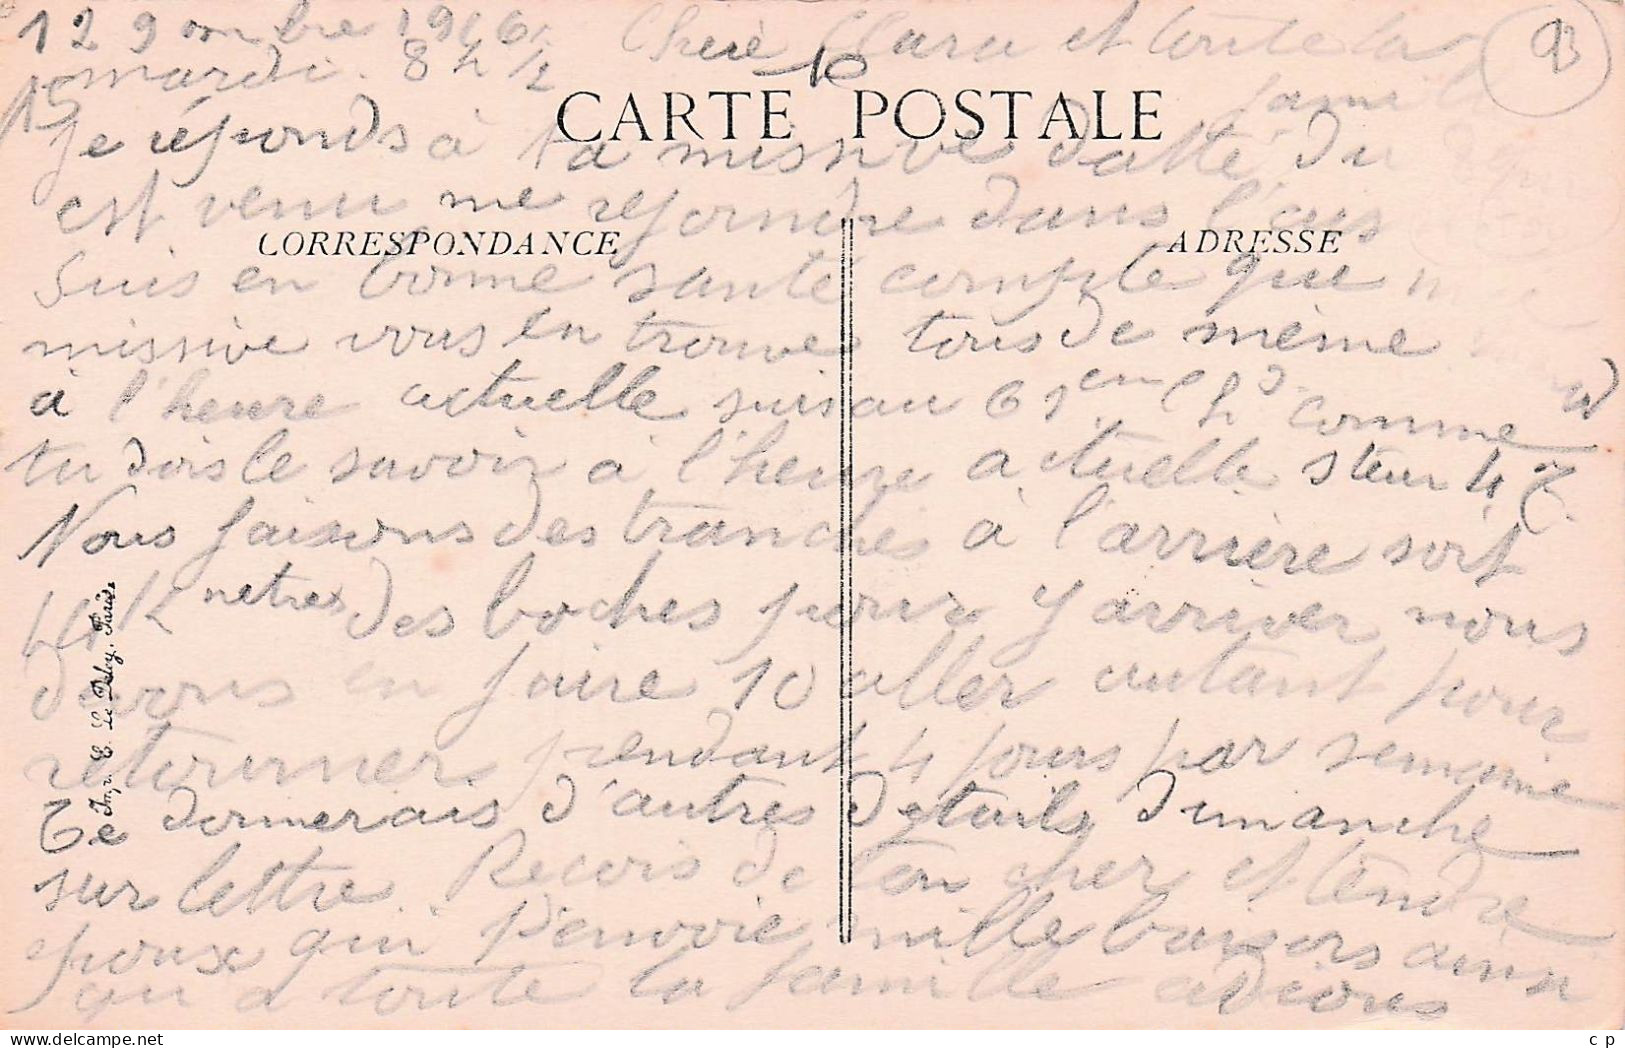 12 9mbre 1916 Chère Clara et toute la
mardi 8 h 1/2 famille
CARTE POSTALE
15 10
93
Je réponds à ta missive datté du
est venu me rejoindre dans l'
CORRESPONDANCE ADRESSE
Suis en bonne santé compte que ma
missive vous en trouve tous de même
à l'heure actuelle suis au 61em comme
tu dois le savoir à l'heure actuelle steur 47
Nous faisons des tranchés à l'arrière soit
4 K netres des boches pour y arriver nous
devons en faire 10 aller autant pour
retourner pendant 4 jours par semaine
Te donnerais d'autres détails Dimanche
sur lettre. Recois de ton cher et tendre
époux qui t'envoie mille baisers ainsi
qu'a toute la famille adious
Imp. E. Le Deley, Paris
delcampe.net
c p